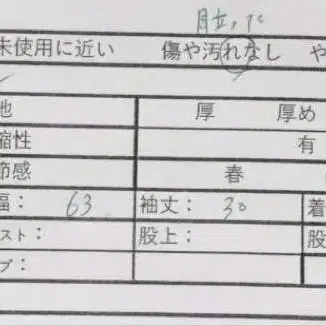 目立って
未使用に近い 傷や汚れなし や
地 厚 厚め
縮性 有
節感 春
幅： 63 袖丈： 30 着
スト： 股上： 股
プ：